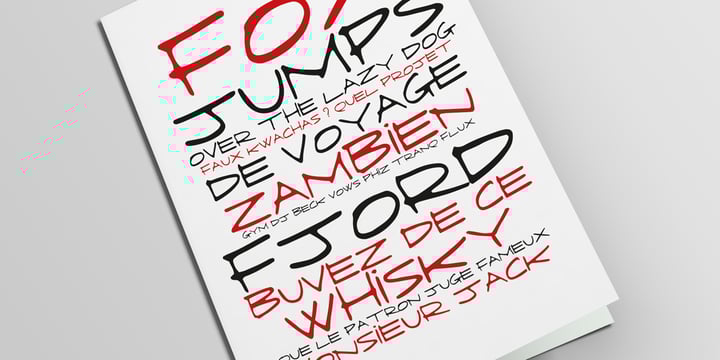 FOX
JUMPS
OVER THE LAZY DOG
FAUX KWACHAS ? QUEL PROJET
DE VOYAGE
ZAMBiEN
GYM DJ BECK VOWS PHIZ TRANQ FLUX
FJORD
BUVEZ DE CE
WHiSKY
QUE LE PATRON JUGE FAMEUX
MONSIEUR JACK